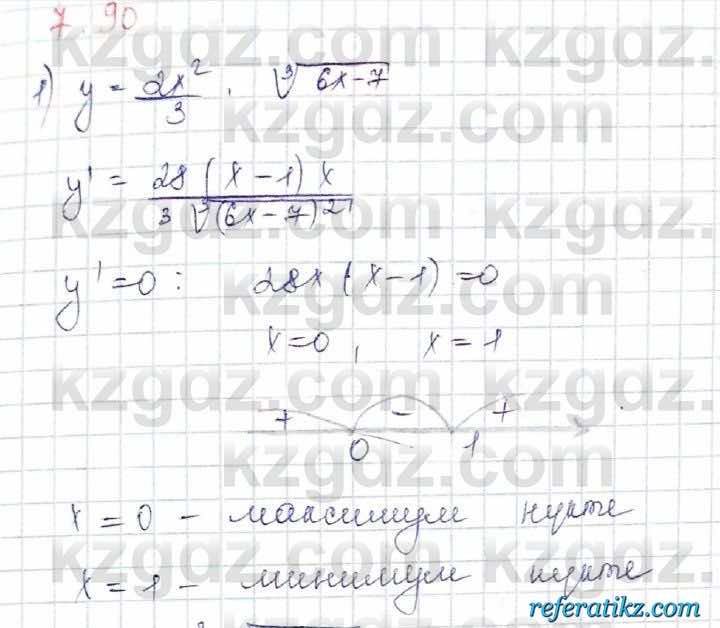 7.90
1) y = 2x²/3 · ∛(6x-7)
y' = 28(x-1)x / 3∛(6x-7)²
y'=0: 28x(x-1)=0
x=0, x=1
+ - +
0 1
x=0 - максимум нүкте
x=1 - минимум нүкте
kzgdz.com
referatikz.com